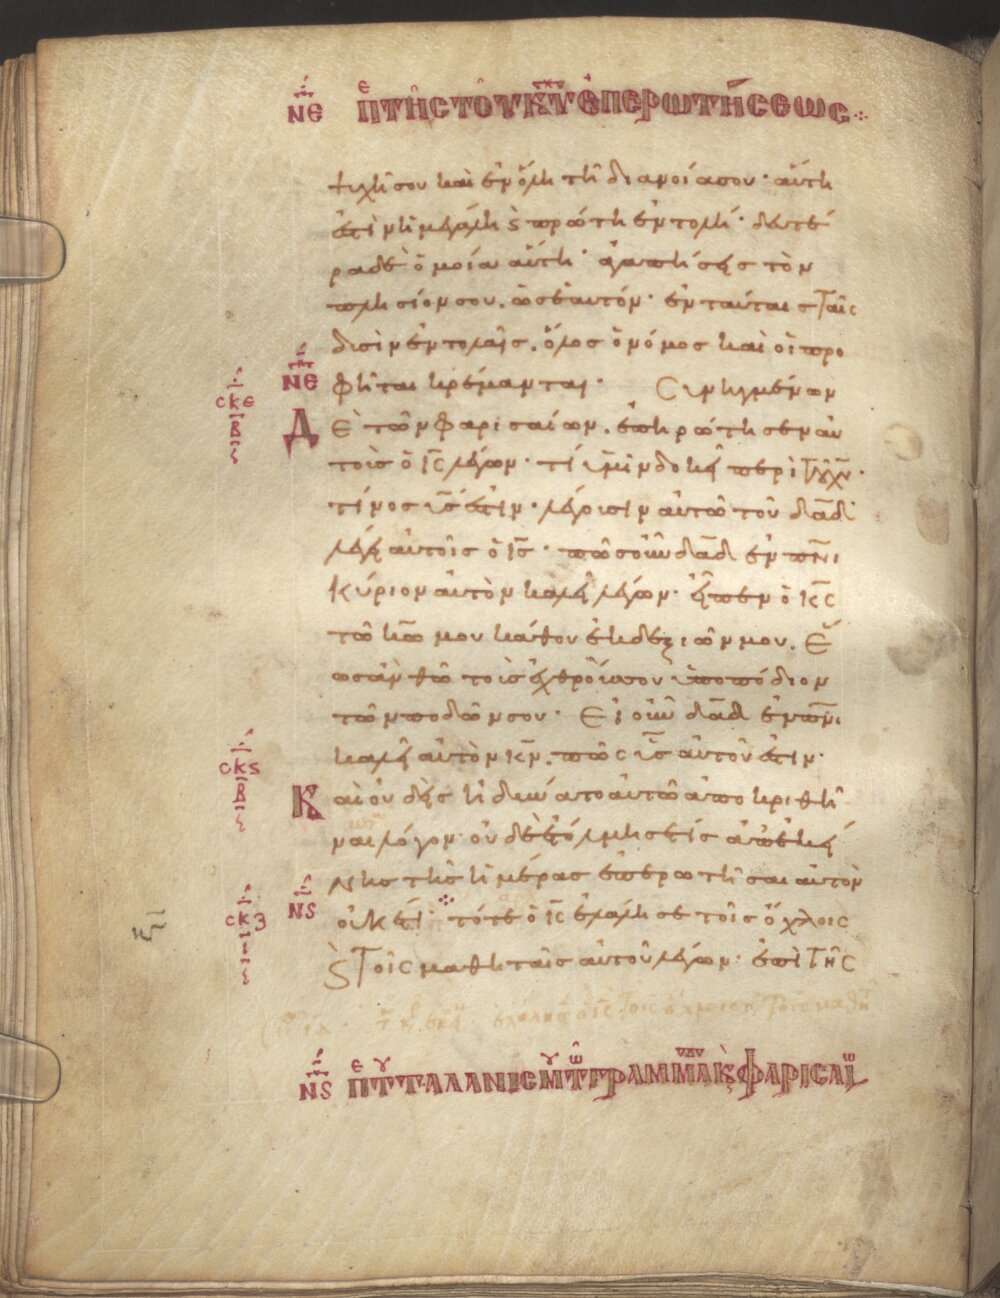 ΝΕ ΠΕΡΙ ΤΗΣ ΤΟΥ ΚΥ ΕΠΕΡΩΤΗΣΕΩΣ
ψυχῆ σου καὶ ἐν ὅλη τῆ διανοία σου· αὕτη
ἐστὶν ἡ μεγάλη ϗ πρώτη ἐντολή· δευτέ
ρα δὲ ὁμοία αὕτη· ἀγαπήσεις τὸν
πλησίον σου, ὡς ἑαυτόν· ἐν ταύταις ταῖς
δυσὶν ἐντολαῖς, ὅλος ὁ νόμος καὶ οἱ προ
ΝΕ φῆται κρέμανται· Συνηγμένων
ϹΚΕ Β Δὲ τῶν φαρισαίων, ἐπηρώτησεν αὐ
τοὺς ὁ ΙϹ λέγων· τί ὑμῖν δοκεῖ περὶ τοῦ ΧΥ·
τίνος ΥϹ ἐστιν· λέγουσιν αὐτῶ τοῦ ΔΑΔ·
λέγει αὐτοῖς ὁ ΙϹ· πῶς οὖν ΔΑΔ ἐν ΠΝΙ
Κύριον αὐτὸν καλεῖ λέγων· εἶπεν ὁ ΚϹ
τῶ ΚΩ μου κάθου ἐκ δεξιῶν μου, Ἕ
ως ἂν θῶ τοὺς ἐχθρούς σου ὑποπόδιον
τῶν ποδῶν σου· Εἰ οὖν ΔΑΔ ἐν ΠΝΙ
καλεῖ αὐτὸν ΚΝ, πῶς ΥϹ αὐτοῦ ἐστιν·
ϹΚϚ Β Καὶ οὐδεὶς ἠδύνατο αὐτῶ ἀποκριθῆ
ναι λόγον· οὐδὲ ἐτόλμησέ τις ἀπ᾽ ἐκεί
νης τῆς ἡμέρας ἐπερωτῆσαι αὐτὸν
ϹΚΖ Ι ΝϚ οὐκέτι· τότε ὁ ΙϹ ἐλάλησε τοῖς ὄχλοις
ϗ Τοῖς μαθηταῖς αὐτοῦ λέγων· ἐπὶ Τῆς
ἐλάλησεν ὁ ΙϹ τοῖς ὄχλοις ϗ τοῖς μαθη
ΝϚ ΠΕΡΙ ΤΟΥ ΤΑΛΑΝΙϹΜΟΥ ΤΩΝ ΓΡΑΜΜΑ Κ ΦΑΡΙϹΑΙ